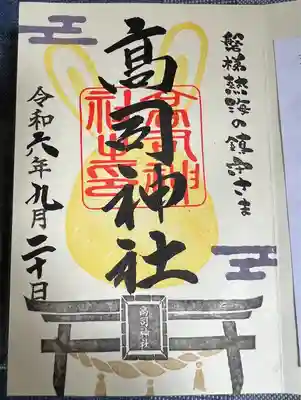 磐梯熱海の鎮守さま
高司神社
高司神社印
令和六年九月二十日
高司神社